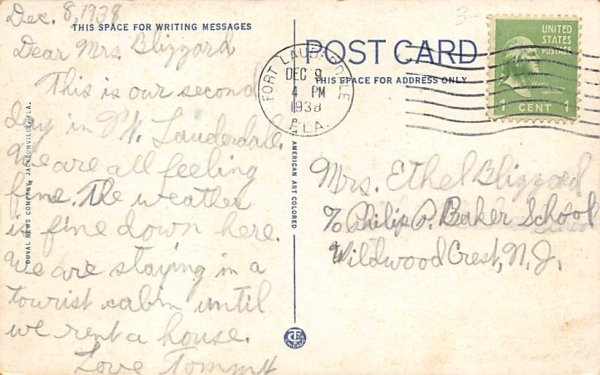 Dec. 8, 1938
THIS SPACE FOR WRITING MESSAGES
Dear Mrs. Blizzard
This is our second
day in Ft. Lauderdale.
We are all feeling
fine. The weather
is fine down here.
We are staying in a
tourist cabin until
we rent a house.
Love Tommy
DUVAL NEWS COMPANY, JACKSONVILLE, FLA.
AMERICAN ART COLORED
POST CARD
THIS SPACE FOR ADDRESS ONLY
FORT LAUDERDALE
DEC 9
4 PM
1938
FLA.
UNITED
STATES
POSTAGE
1 CENT 1
Mrs. Ethel Blizzard
c/o Philip P. Baker School
Wildwood Crest, N.J.